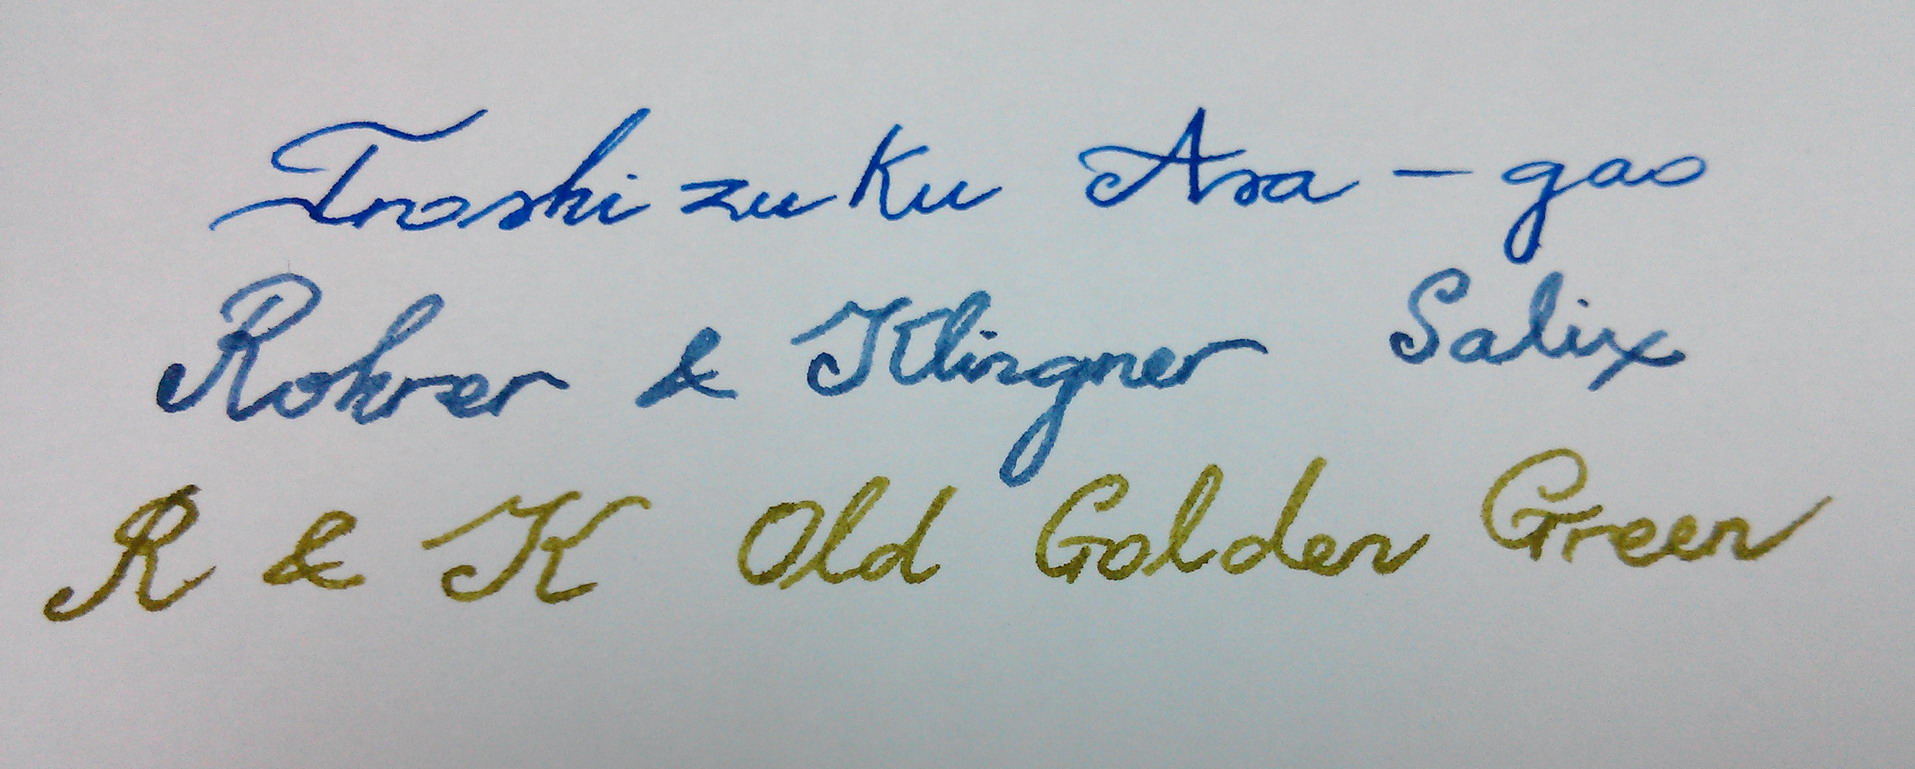 Iroshizuku Asa-gao
Rohrer & Klingner Salix
R & K Old Golden Green